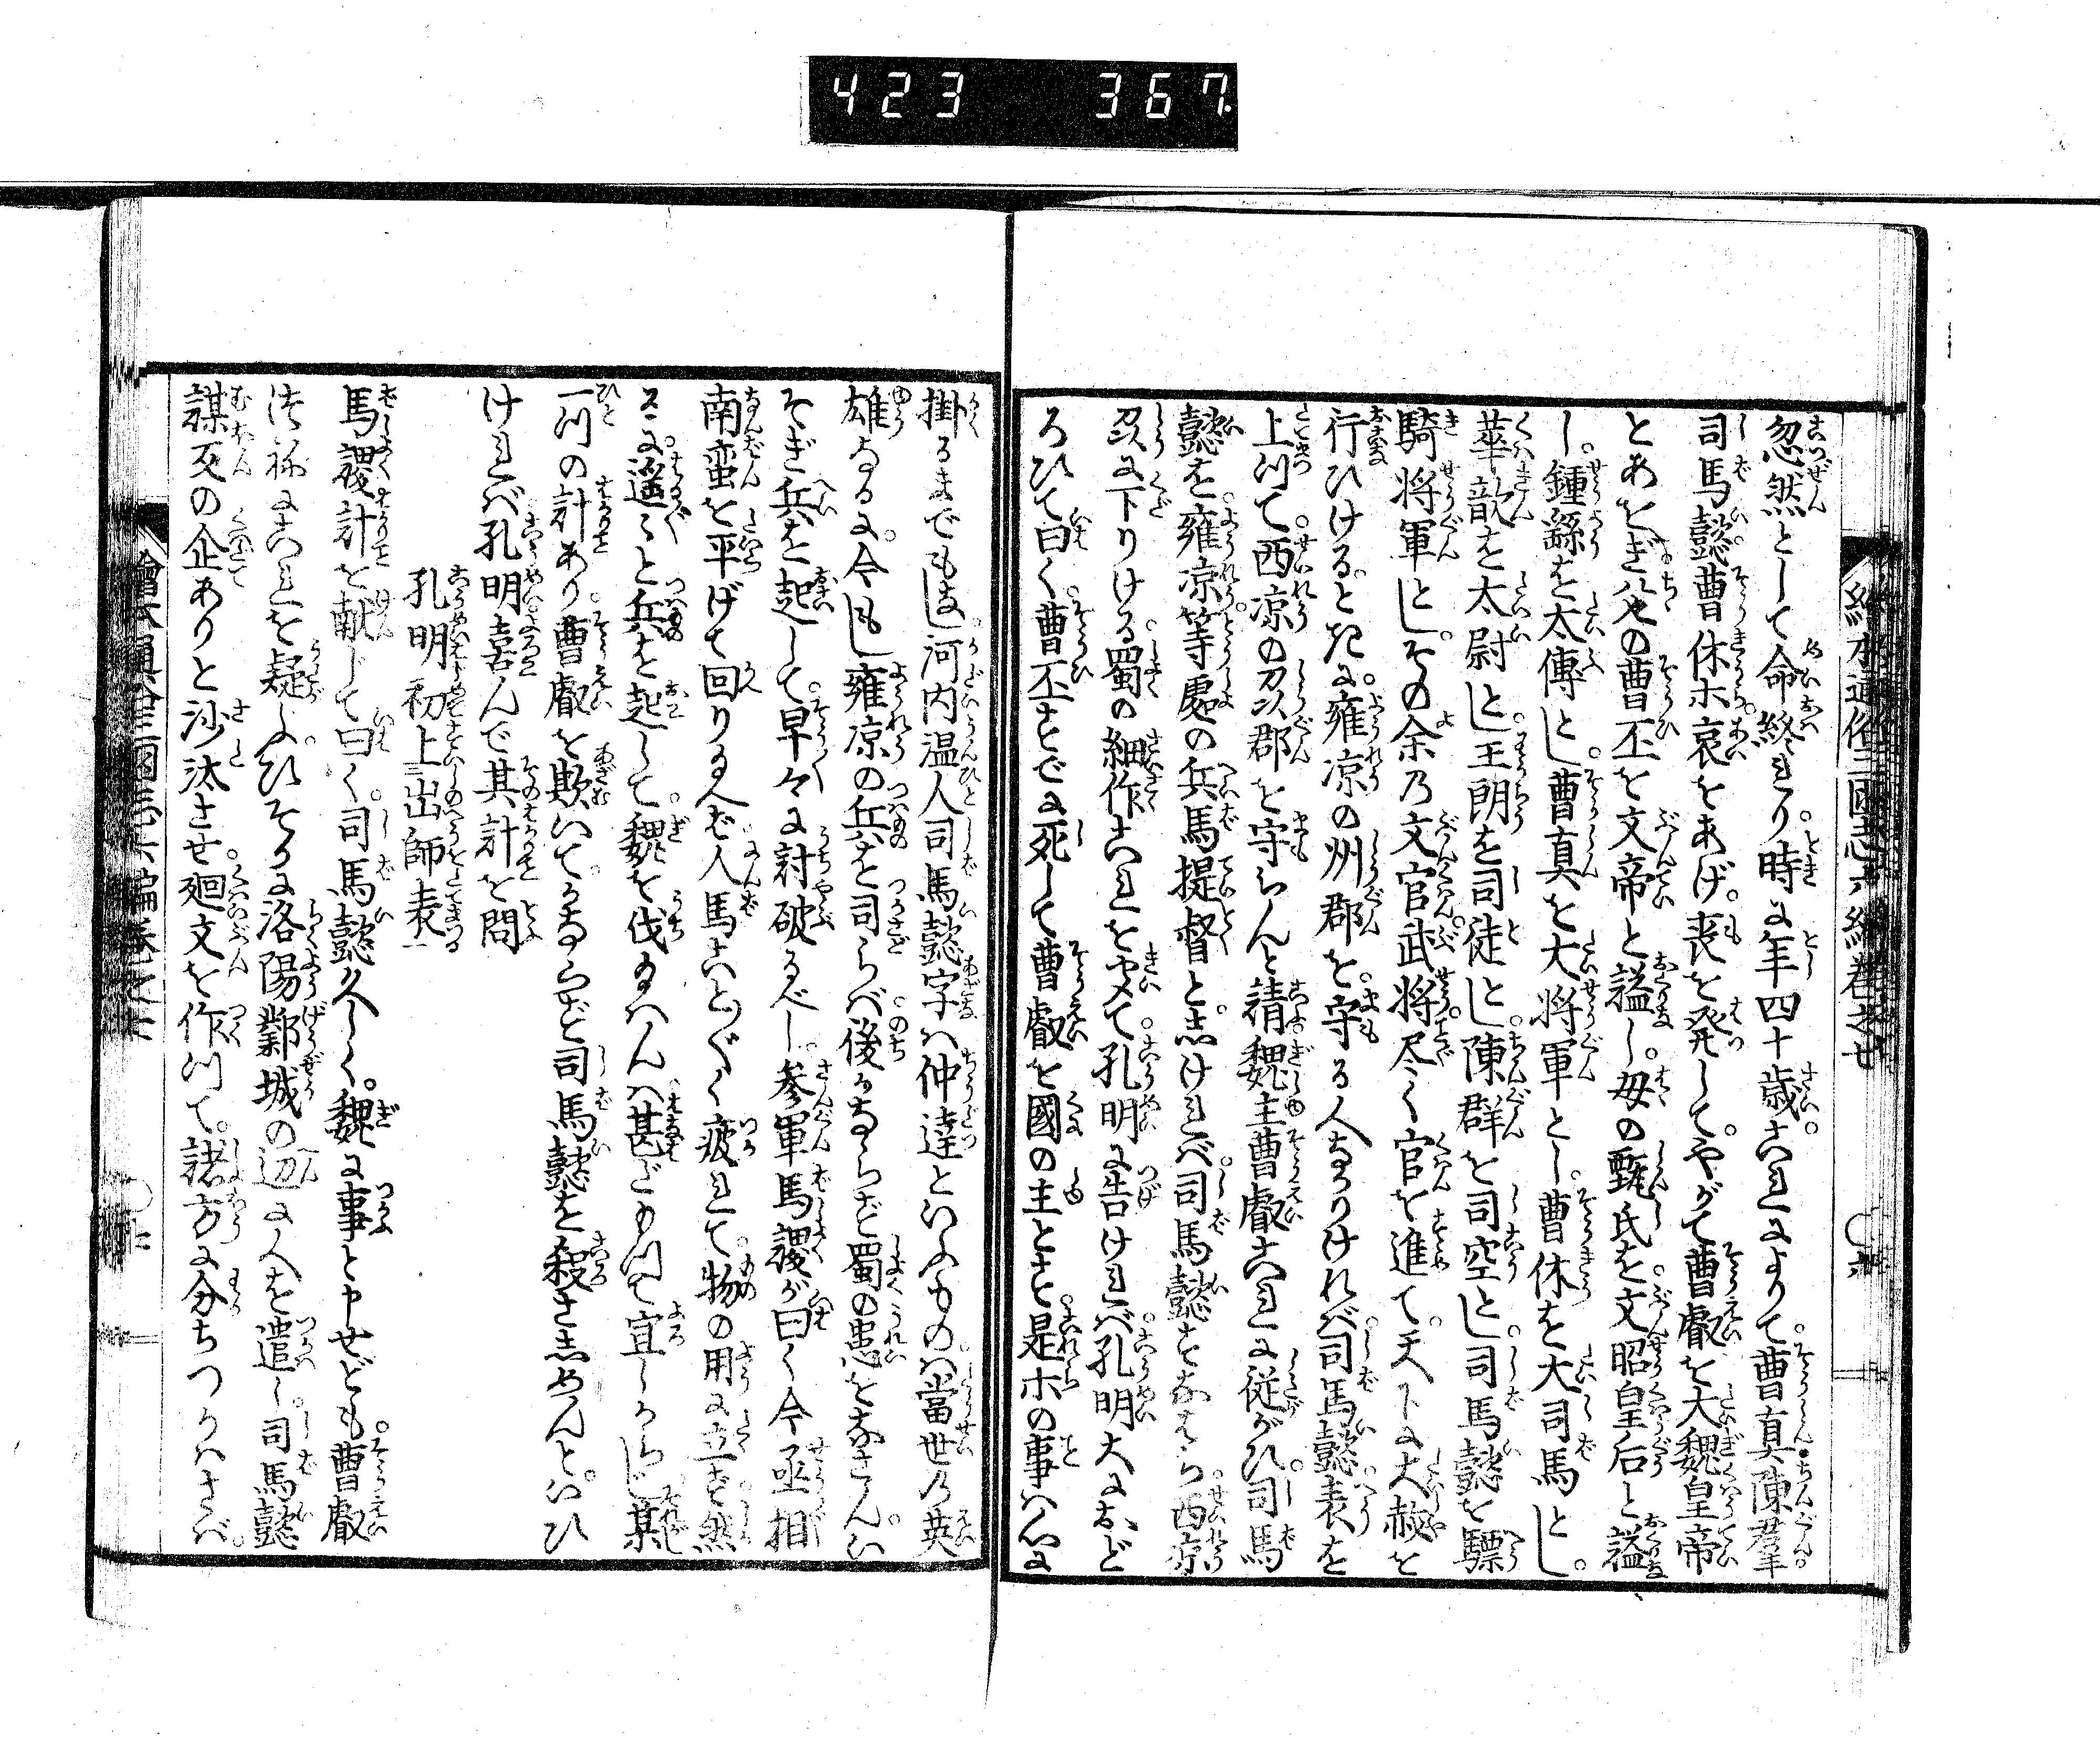 423 367
繪本通俗三國志六編巻之七
忽然として命終れり時に年四十歳これによりて曹真陳羣
司馬懿曹休ホ哀をあげ喪を発してやがて曹叡を大魏皇帝
とあをぎ父の曹丕を文帝と諡し母の甄氏を文昭皇后と諡
し鍾繇を太傅とし曹真を大将軍とし曹休を大司馬とし
華歆を太尉とし王朗を司徒とし陳群を司空とし司馬懿を驃
騎将軍としその余乃文官武将尽く官を進て天下に大赦を
行ひけるときに雍凉の州郡を守る人なかりければ司馬懿表を
上つて西凉の州郡を守らんと請魏主曹叡これに従がひ司馬
懿を雍凉等處の兵馬提督としけれべ司馬懿すなはち西凉
州に下りける蜀の細作これを聞て孔明に告けれバ孔明大におど
ろひて曰く曹丕すでに死して曹叡を國の主とす是ホの事ハ心に
掛るまでもなし河内温人司馬懿字ハ仲達といふものハ當世乃英
雄なるに今もし雍凉の兵を司らバ後かならず蜀の患をなさんい
そぎ兵を起して早々に討破るべし参軍馬謖が曰く今丞相
南蛮を平げて回り給へば人馬ことごとく疲れて物の用に立ず然
るに遥々と兵を起して魏を伐給へんハ甚だもつて宜しからじ某
一つの計あり曹叡を欺いてかならず司馬懿を殺さしめんといひ
けれバ孔明喜んで其計を問
孔明初上出師表
馬謖計を献じて曰く司馬懿久しく魏に事と申せども曹叡
つねにこれを疑ふひそかに洛陽鄴城の辺に人を遣し司馬懿
謀反の企ありと沙汰させ廻文を作つて諸方に分ちつかハさバ
繪本通俗三國志六編巻之七